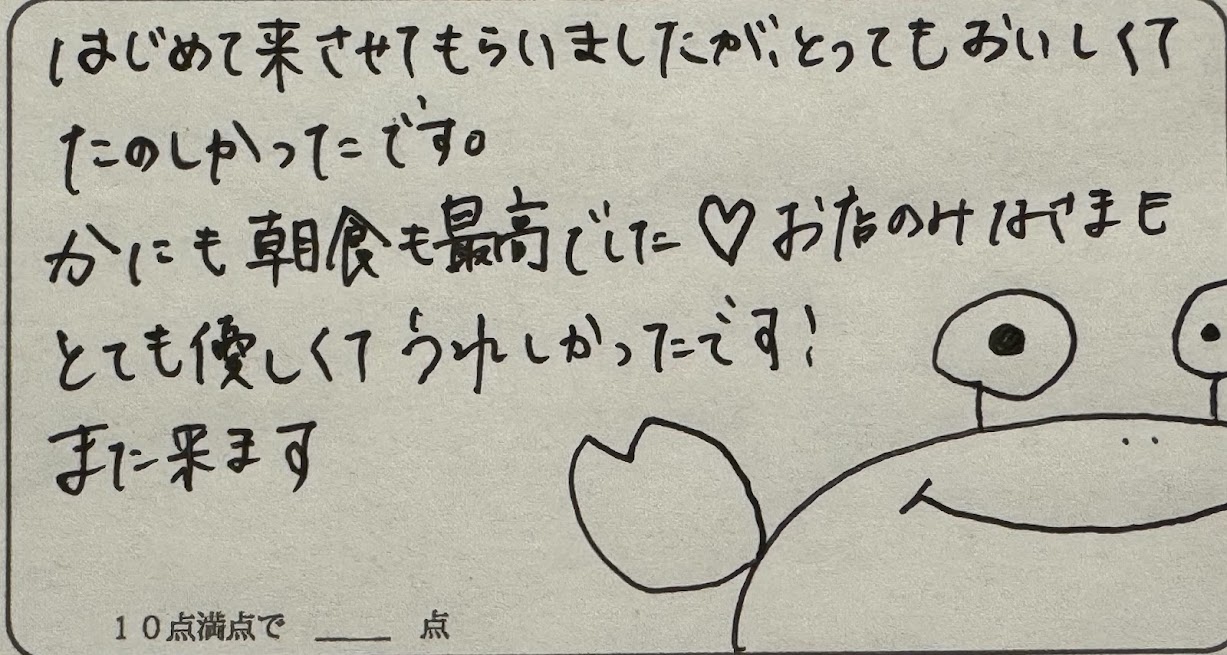 はじめて来させてもらいましたが、とってもおいしくて
たのしかったです。
かにも朝食も最高でした♡お店のみなさまも
とても優しくてうれしかったです!
また来ます
10点満点で ____ 点